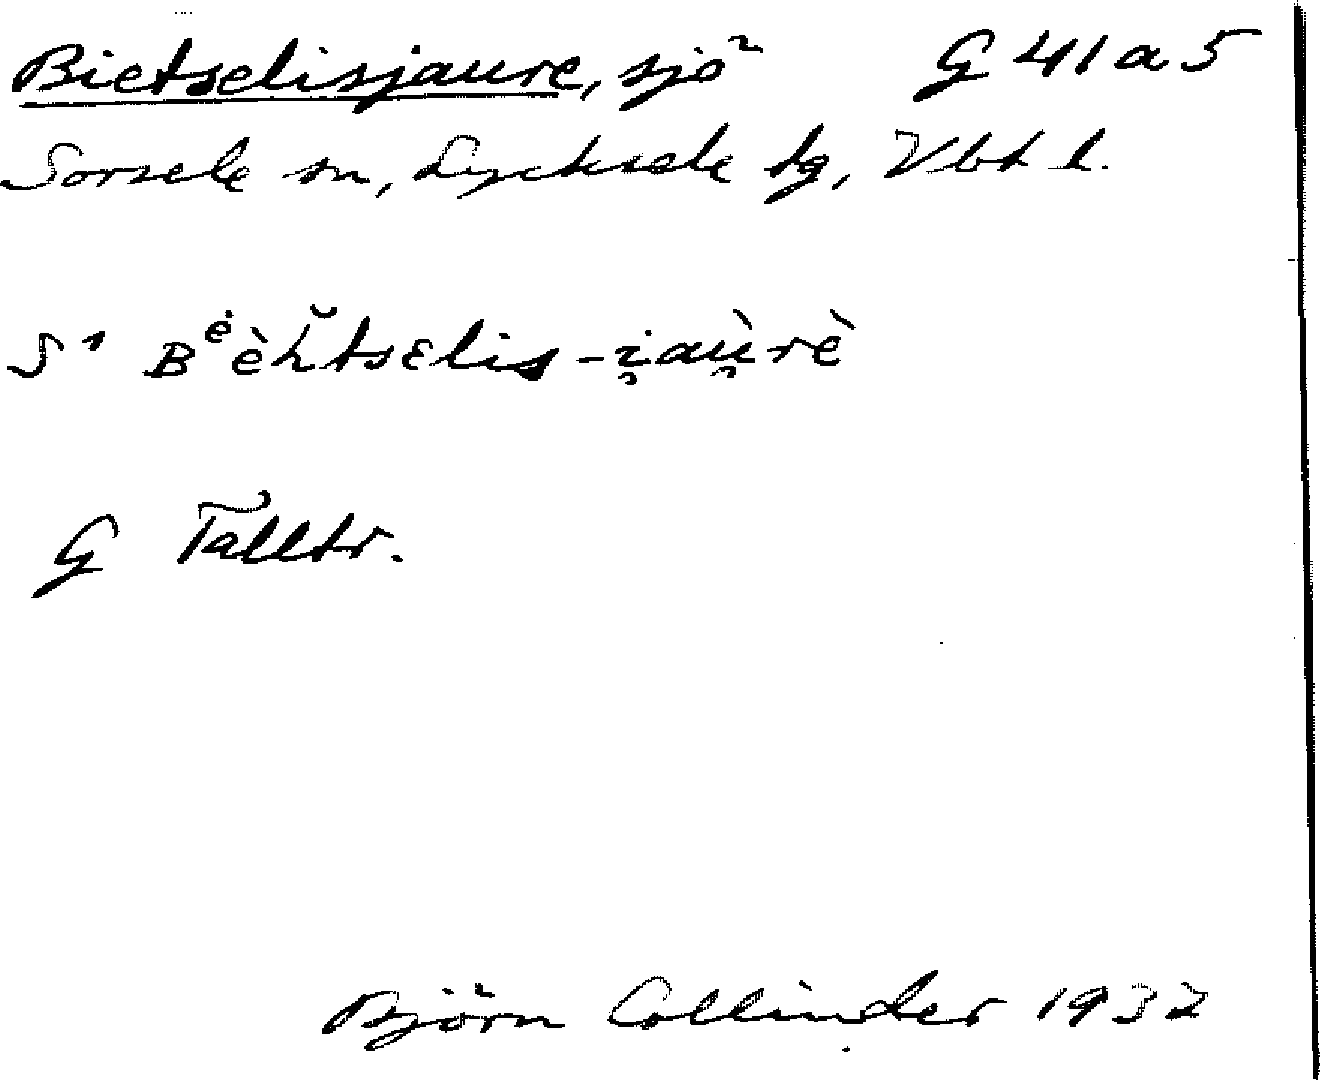 Bietselisjaure, sjö G 41 a 5
Sorsele sn, Lycksele tg, Vbt l.
S¹ Bᵉ̇èh̆tsɛlis-i̯aù̯rè
G Talltr.
Björn Collinder 1932